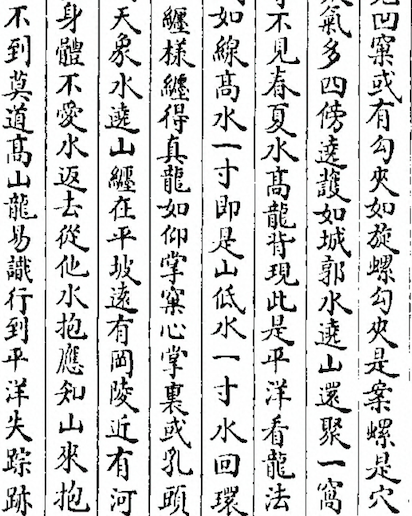 凹窠或有勾夾如旋螺勾夾是案螺是穴
氣多四傍遶護如城郭水遶山還聚一窩
不見春夏水髙龍背現此是平洋看龍法
如線髙水一寸即是山低水一寸水回環
纏樣纏得真龍如仰掌窠心掌裏或乳頭
天象水遶山纏在平坡遠有岡陵近有河
身體不愛水返去從他水抱應知山來抱
不到莫道髙山龍易識行到平洋失踪跡